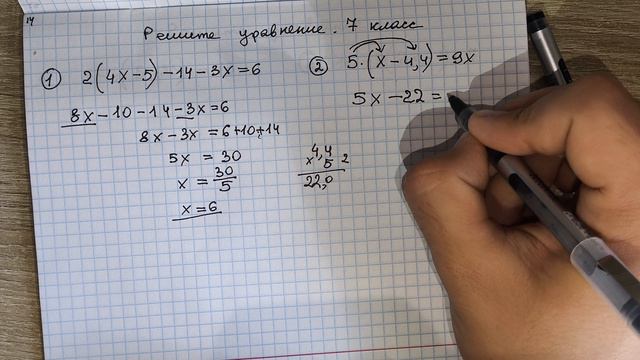 14
Решите уравнение. 7 класс
① 2(4x-5)-14-3x=6
8x-10-14-3x=6
8x-3x=6+10+14
5x=30
x=30/5
x=6
② 5·(x-4,4)=9x
5x-22=
4,4
x 5 2
22,0